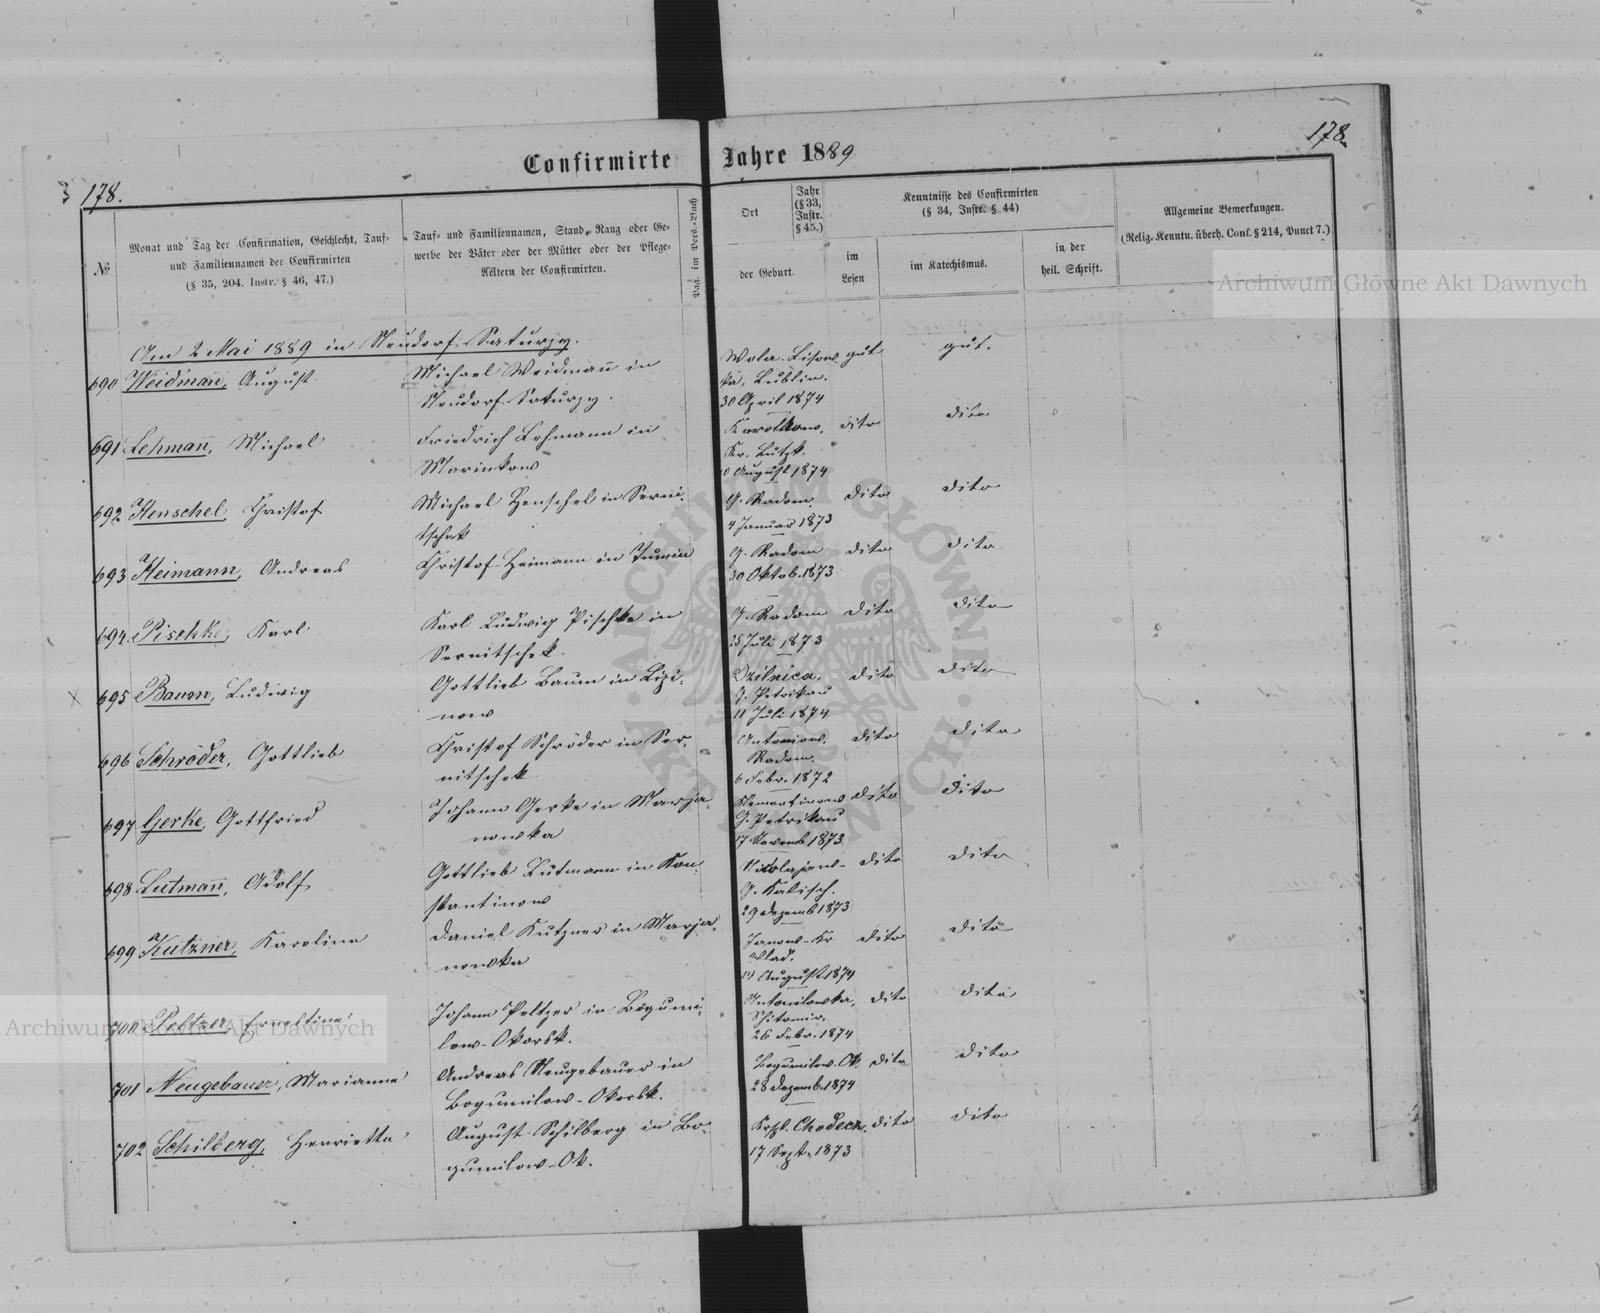 Confirmirte Jahre 1889
178.
178.
№
Monat und Tag der Confirmation, Geschlecht, Tauf-
und Familiennamen der Confirmirten
(§ 35, 204. Instr. § 46, 47.)
Tauf- und Familiennamen, Stand, Rang oder Ge-
werbe der Väter oder der Mütter oder der Pflege-
Aeltern der Confirmirten.
Pag. im Pers.-Buch
Ort
Jahr
(§ 33,
Instr.
§ 45.)
der Geburt.
Kenntnisse des Confirmirten
(§ 34, Instr. § 44)
im
Lesen
im Katechismus.
in der
heil. Schrift.
Allgemeine Bemerkungen.
(Relig.-Kenntn. überh. Conf. § 214, Punct 7.)
Am 2 Mai 1889 in Neudorf-Saturzy.
690 Weidmañ, August
Michael Weidmañ in
Neudorf-Saturzy.
Wola-Lisow-
ka, Lublin.
30 April 1874
gut
gut.
691 Lehmañ, Michael
Friedrich Lehmann in
Marinkow
Karolinow,
Kr. Lutzk.
August 1874
dito
dito
692 Henschel, Christof
Michael Henschel in Serni-
tschek
G. Radom
4 Januar 1873
dito
dito
693 Heimann, Andreas
Christof Heimann in Tumin
G. Radom
30 Oktob. 1873
dito
dito
694. Pischke, Karl
Karl Ludwig Pischke in
Sernitschek.
G. Radom
25 Juli 1873
dito
dito
695 Baum, Ludwig
Gottlieb Baum in Lizi-
now
G. Petrikau
11 Juli 1874
dito
dito
696 Schröder, Gottlieb
Christof Schröder in Ser-
nitschek
Antoniow,
Radom.
6 Febr. 1872
dito
dito
697 Gerke, Gottfried
Johann Gerke in Marja-
nowka
G. Petrikau
17 Novemb 1873
dito
dito
698 Lutmañ, Adolf
Gottlieb Lutmann in Kon-
stantinow
Nikolajew-
G. Kalisch.
29 Dezemb 1873
dito
dito
699 Kutzner, Karoline
Daniel Kutzner in Marja-
nowka
Janow-Kr
Wlad.
14 August 1874
dito
dito
700 Peltzer, Ernestine
Johann Peltzer in Bogumi-
low-Okorsk.
Antonilowka,
Schitomir.
26 Febr. 1874
dito
dito
701 Neugebauer, Marianne
Andreas Neugebauer in
Bogumilow-Okorsk.
Bogumilow-Ok.
28 Dezemb. 1874
dito
dito
702 Schilberg, Henriette
August Schilberg in Bo-
gumilow-Ok.
Krspl. Chodecz
17 Sept. 1873
dito
dito
Archiwum Główne Akt Dawnych
Archiwum Główne Akt Dawnych
ARCHIWUM GŁÓWNE AKT DAWNYCH